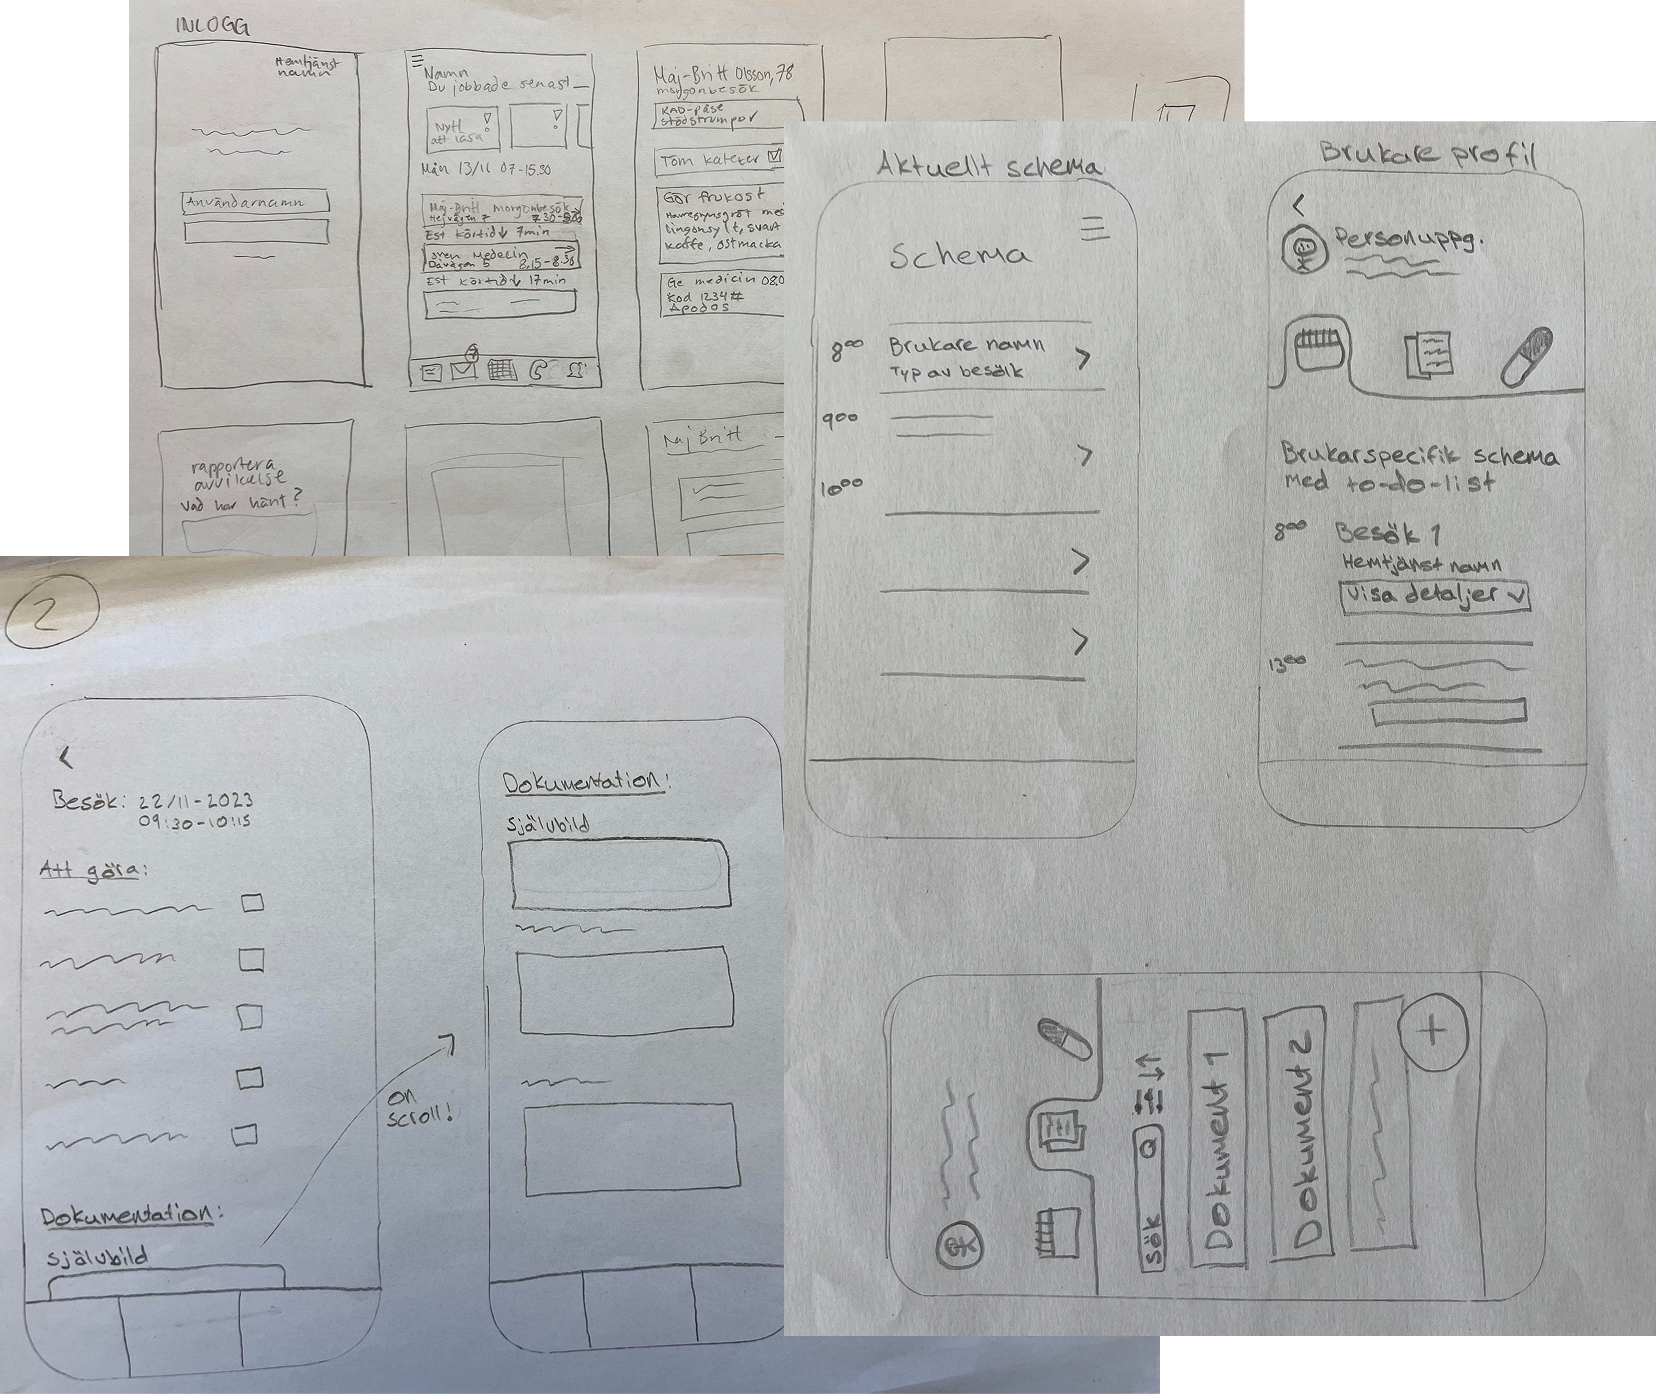 INLOGG
Hemtjänst
namn
Användarnamn
Namn
Du jobbade senast
Nytt
att läsa
!
!
Mån 13/11 07-15.30
Maj-Britt morgonbesök
Hejvägen 7 7.30-
Est körtid 7min
Medecin
8.15-8.30
Est körtid 17min
Maj-Britt Olsson, 78
morgonbesök
KAD-påse
stödstrumpor
Töm kateter
Gör frukost
Havregrynsgröt med
lingonsylt, svart
kaffe, ostmacka
Ge medicin 08.0
Kod 1234#
Apodos
rapportera
avvikelse
Vad har hänt?
Maj Britt
Aktuellt schema
Schema
8⁰⁰ Brukare namn
Typ av besök
9⁰⁰
10⁰⁰
Brukare profil
Personuppg.
Brukarspecifik schema
med to-do-list
8⁰⁰ Besök 1
Hemtjänst namn
Visa detaljer
13⁰⁰
2
Besök: 22/11-2023
09:30-10:15
Att göra:
Dokumentation:
självbild
on
scroll!
Dokumentation:
självbild
sök
Dokument 1
Dokument 2